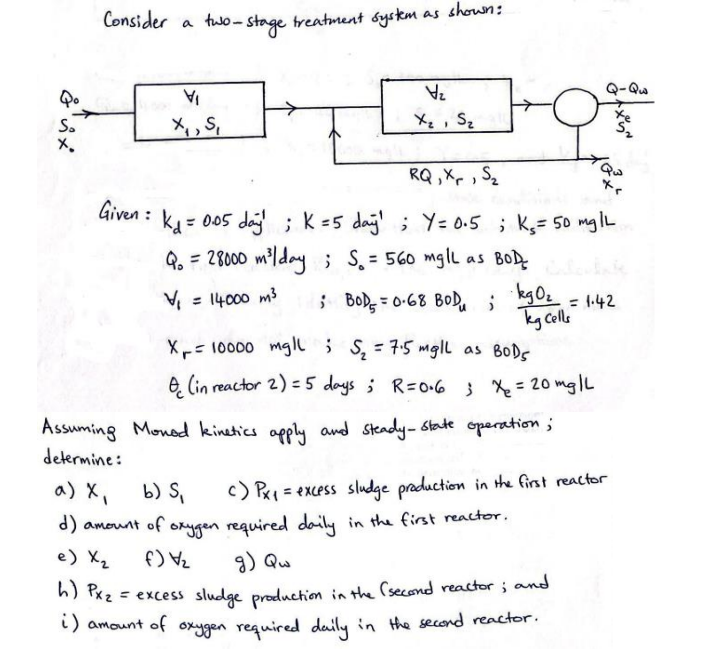 Consider a two-stage treatment system as shown:
Q₀
S₀
X₀
∀₁
X₁, S₁
∀₂
X₂, S₂
Q-Qw
Xe
S₂
RQ, Xr, S₂
Qw
Xr
Given: kd = 0.05 day⁻¹ ; K = 5 day⁻¹ ; Y = 0.5 ; Ks = 50 mg/L
Q₀ = 28000 m³/day ; S₀ = 560 mg/L as BOD₅
∀₁ = 14000 m³ ; BOD₅ = 0.68 BODu ; kg O₂ / kg cells = 1.42
Xr = 10000 mg/L ; S₂ = 7.5 mg/L as BOD₅
θc (in reactor 2) = 5 days ; R = 0.6 ; Xe = 20 mg/L
Assuming Monod kinetics apply and steady-state operation ;
determine:
a) X₁ b) S₁ c) Px₁ = excess sludge production in the first reactor
d) amount of oxygen required daily in the first reactor.
e) X₂ f) ∀₂ g) Qw
h) Px₂ = excess sludge production in the (second reactor ; and
i) amount of oxygen required daily in the second reactor.